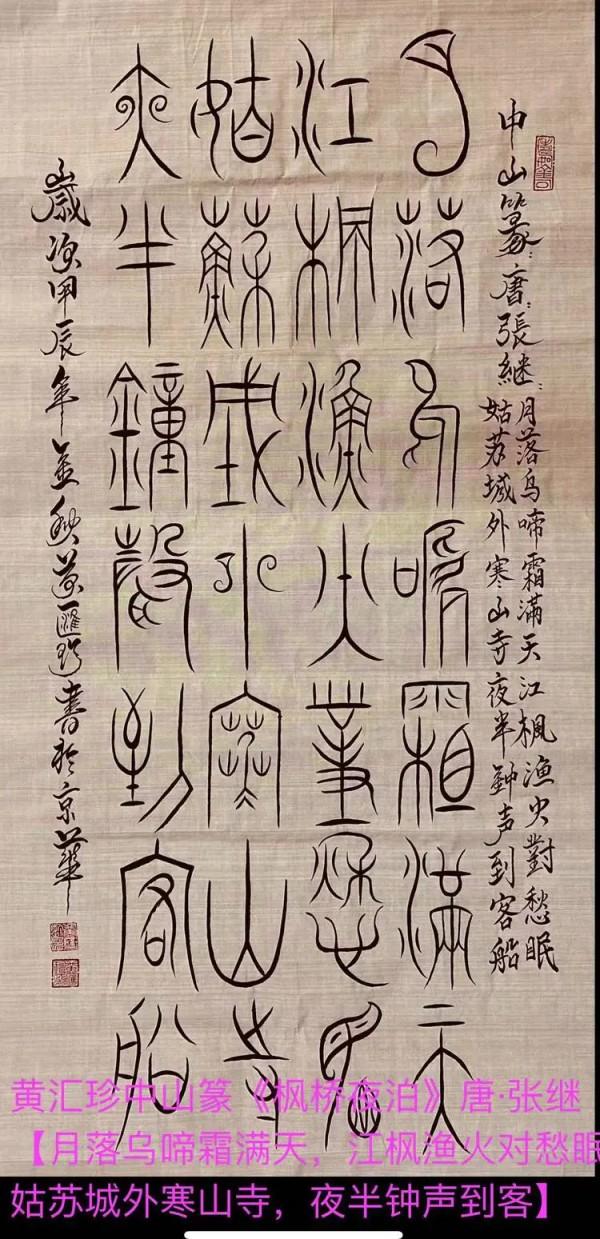 中山篆:唐:張継:
月落烏啼霜滿天江楓渔火對愁眠
姑苏城外寒山寺夜半鈡声到客船
月落烏啼霜滿天
江楓漁火對愁眠
姑蘇城外寒山寺
夜半鐘聲到客船
歲次甲辰年金秋黃匯珍書於京華
黄汇珍中山篆《枫桥夜泊》唐·张继
【月落乌啼霜满天，江枫渔火对愁眠
姑苏城外寒山寺，夜半钟声到客】